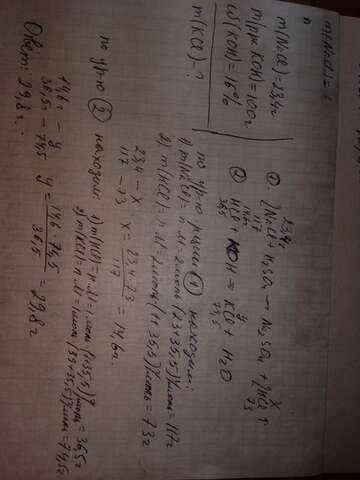 m(NaCl)=23,4г
m(рра KOH)=100г
ω(KOH)=16%
m(KCl)-?
23,4г x
① 2NaCl + H₂SO₄ → Na₂SO₄ + 2HCl↑
117 73
14,6г y
② HCl + KOH = KCl + H₂O
36,5 74,5
по ур-ю ① находим:
1) m(NaCl)=n·M=2моль·(23+35,5)г/моль=117г
2) m(HCl)=n·M=2моль·(1+35,5)г/моль=73г
23,4 – x
117 – 73
x = 23,4·73/117 = 14,6г.
по ур-ю ② находим:
1) m(HCl)=n·M=1моль·(1+35,5)г/моль=36,5г
2) m(KCl)=n·M=1моль·(39+35,5)г/моль=74,5г
14,6 – y
36,5 – 74,5
y = 14,6·74,5/36,5 = 29,8г
Ответ: 29,8г.